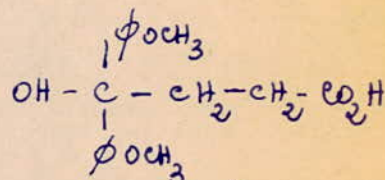 ϕOCH₃
OH - C - CH₂ - CH₂ - CO₂H
ϕOCH₃